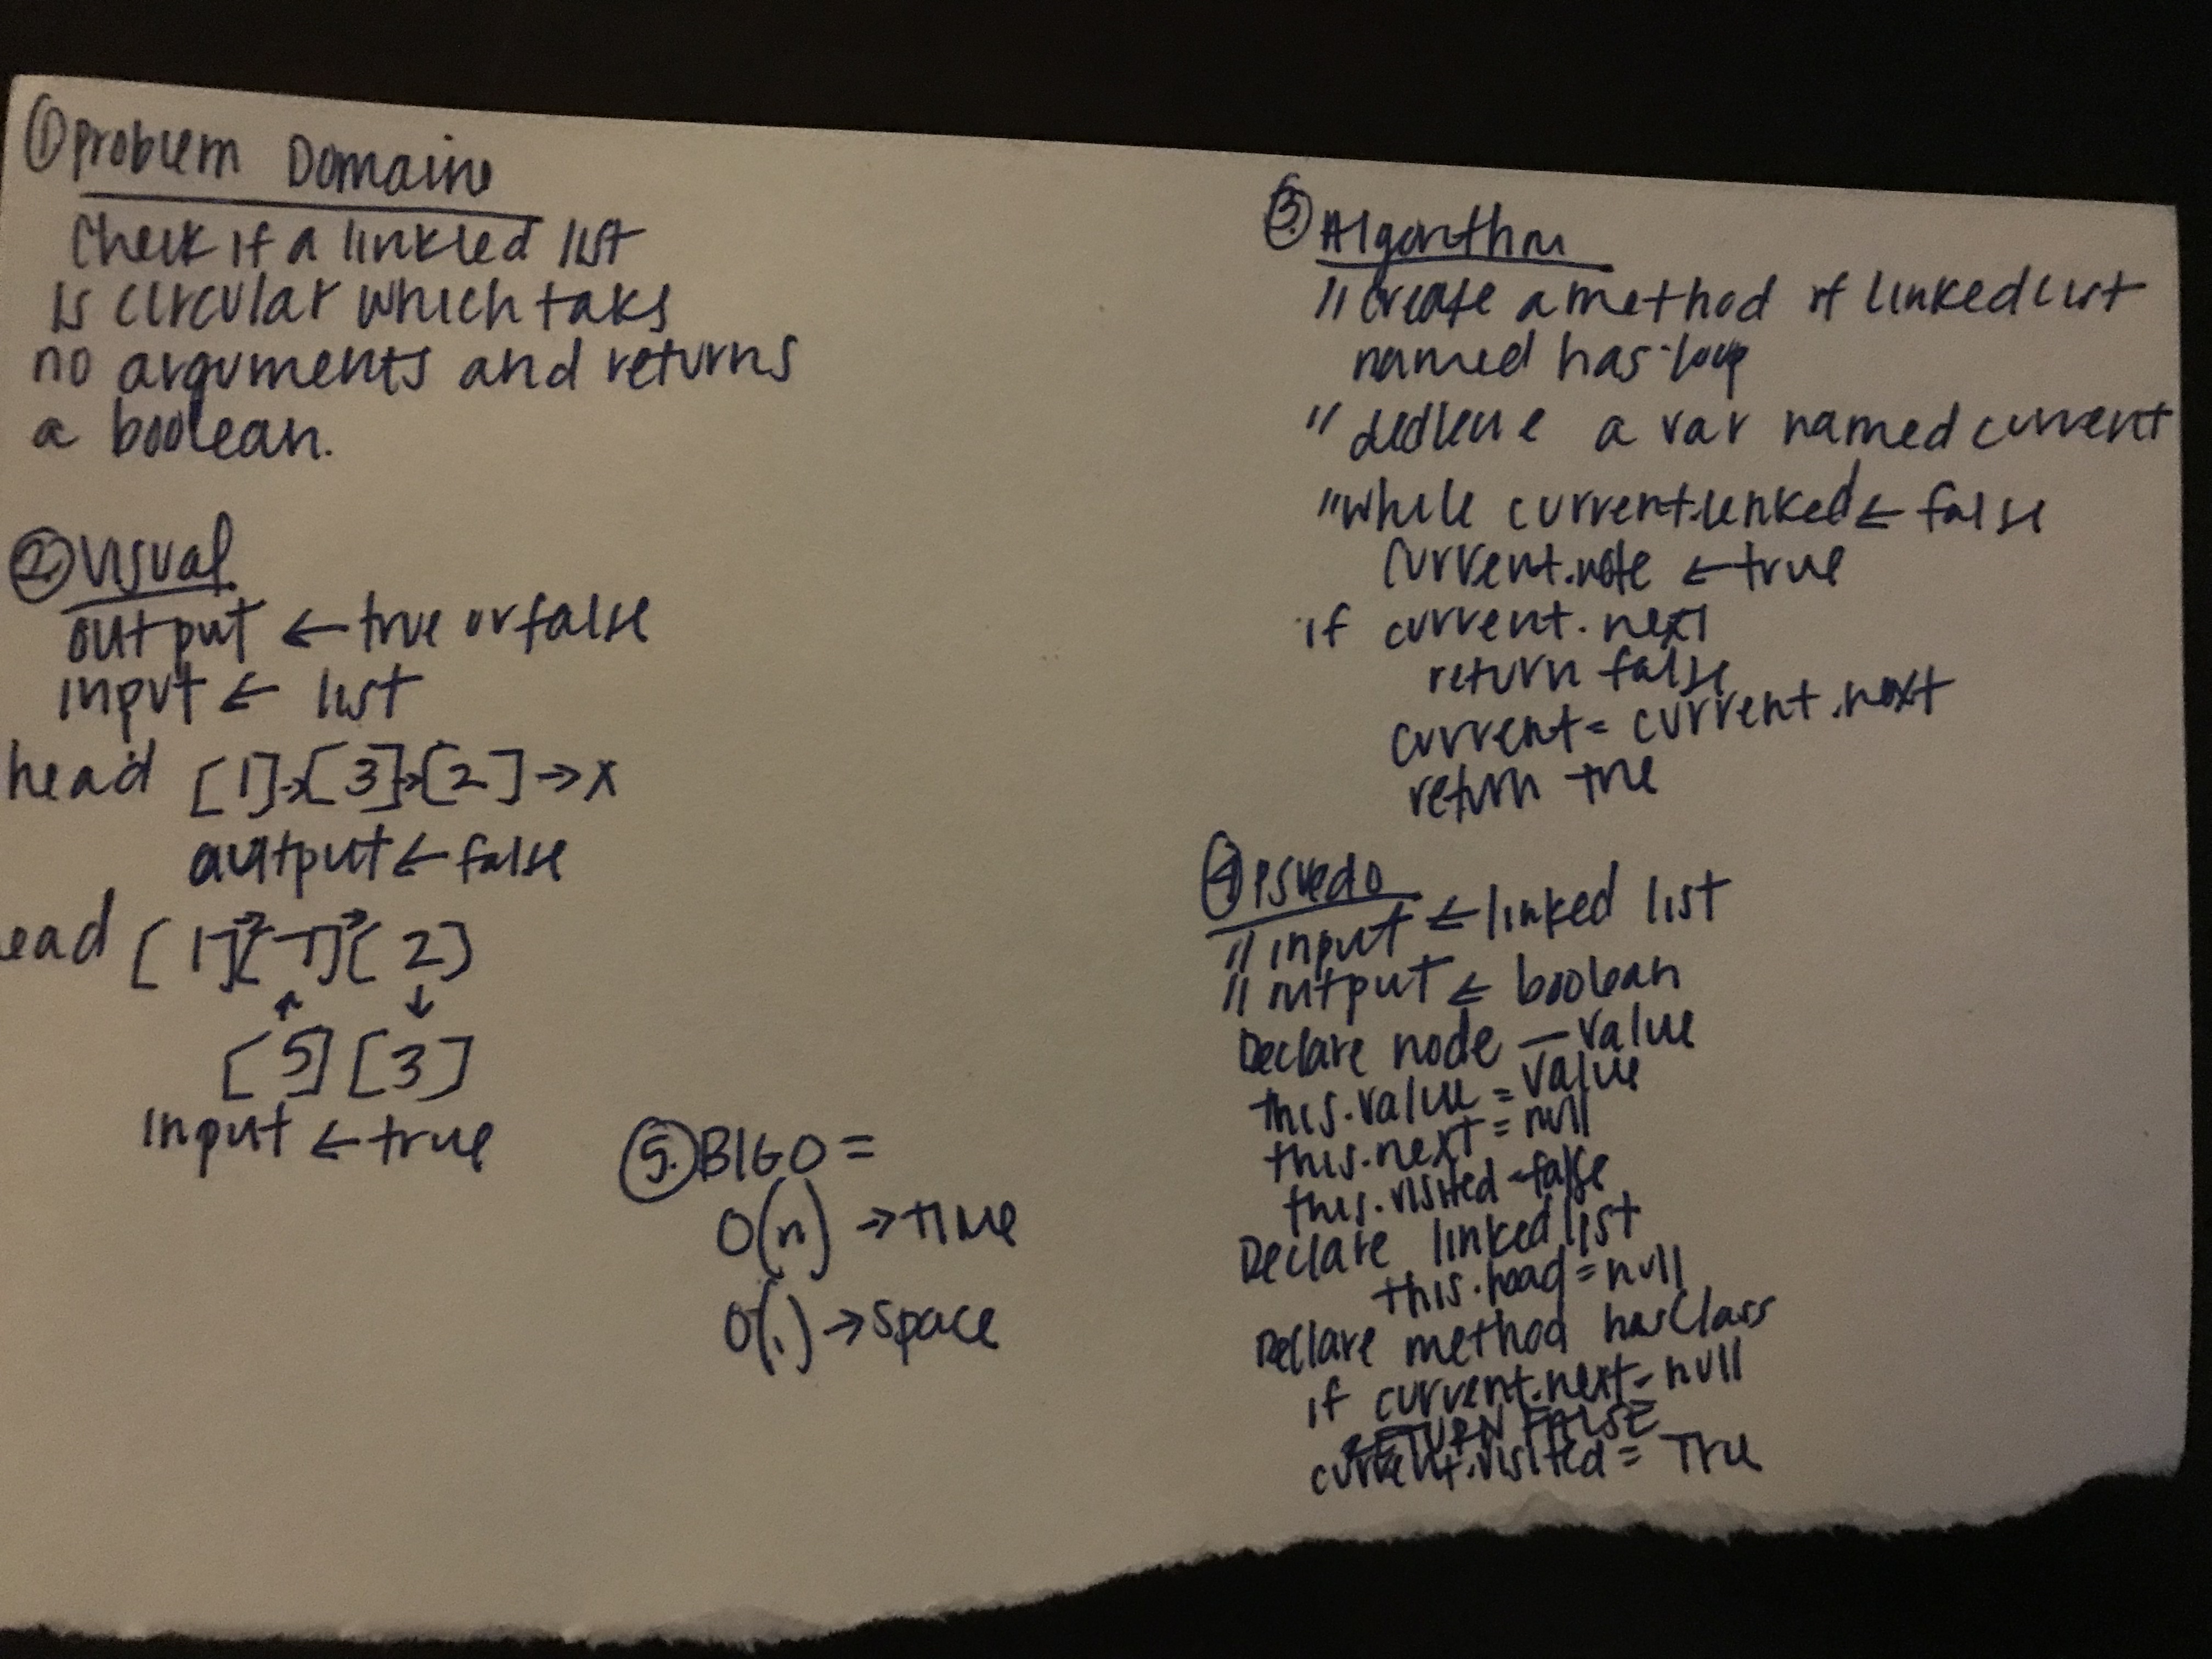 ① Problem Domain
Check if a linked list
is circular which taks
no arguments and returns
a boolean.
② Visual
output ← true or false
input ← list
head [1]→[3]→[2]→x
output ← false
ead [1] → [7] → [2]
[5] [3]
input ← true
⑤. BIG O =
O(n) → time
O(1) → space
③. Algorithm
// create a method of linked list
named has loop
// a var named current
" while current. ← false
current. ← true
if current.next
return false
current = current.next
return true
④ Psuedo
// input ← linked list
// output ← boolean
Declare node - value
this.value = value
this.next = null
this.visited = false
Declare linked list
this.head = null
Declare method
if current.next = null
return false
current.visited = True